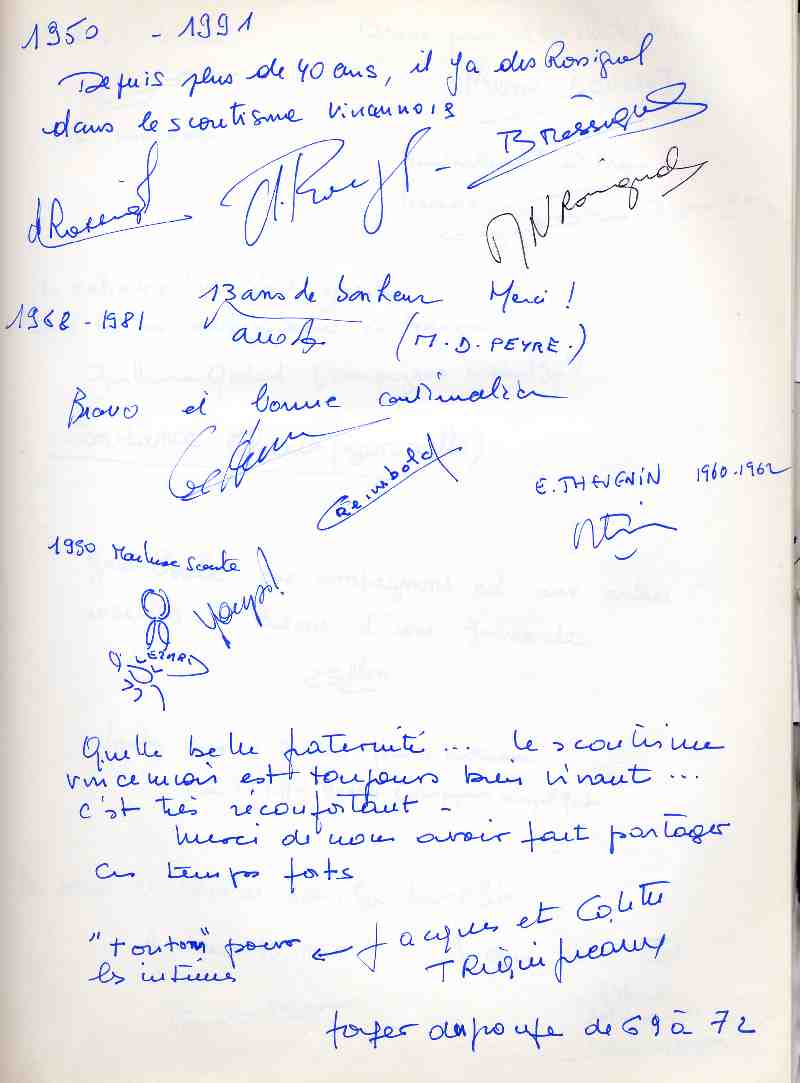 1950 - 1991
Depuis plus de 40 ans, il y a des Rossignol
dans le scoutisme vincennois
B Rossignol
d Rossignol
MN Rossignol
13 ans de bonheur Merci !
1968 - 1981
(M. D. PEYRE.)
Bravo et bonne continuation
Reimbold
E. THEVENIN 1960-1962
1950
Scoute
Youpi!
Quelle belle fraternité ... le scoutisme
vincennois est toujours bien vivant ...
c'est très réconfortant -
Merci de nous avoir fait partager
ces temps forts
"tonton" pour ← Jacques et Colette
les intimes
de 69 à 72